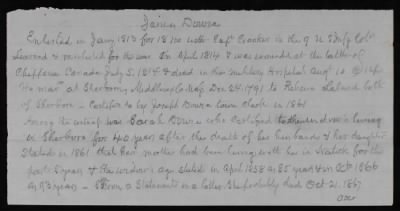 James Dowse
Enlisted in Jany 1813 for 18 mo with Capt Crooker in the 9 U S Infy Colo
Learned & reenlisted for the war in April 1814 & was wounded at the battle of
Chippewa Canada July 5, 1814 & died in the military Hospital Aug 10 1814
He mard at Sherborn, Middlesex Co Mass Dec 24 1791 to Rebecca Leland both
of Sherborn - Certified to by Joseph Dowse town clerk in 1861
Among the was Sarah Dowse who certified to the widow's living
in Sherborn for 40 years after the death of her husband & her daughter
Stated in 1861 that her mother had been living with her in Natick for the
past 8 years & the widow's age stated in April 1858 as 85 years & in Oct 1866
as 93 years - Statements in a letter She probably died Oct 21, 1867
over